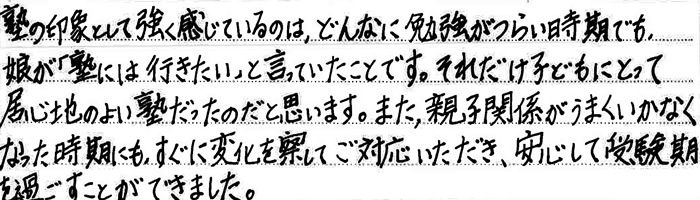 塾の印象として強く感じているのは、どんなに勉強がつらい時期でも、
娘が「塾には行きたい」と言っていたことです。それだけ子どもにとって
居心地のよい塾だったのだと思います。また、親子関係がうまくいかなく
なった時期にも、すぐに変化を察してご対応いただき、安心して受験期
を過ごすことができました。